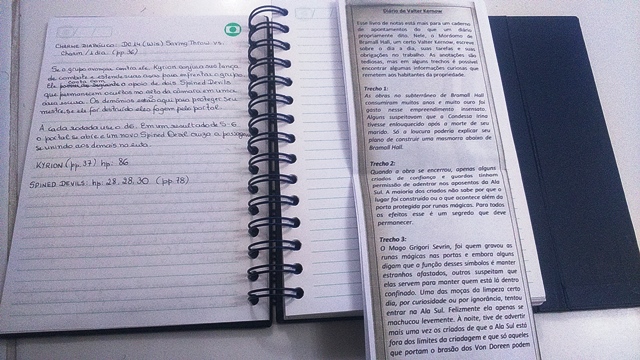 CHARME DIABÓLICO: DC 14 (WIS) SAVING THROW VS.
CHARM / 1 dia. (pp. 36)
Se o grupo avançar contra ele, Kyrion conjura sua lança
de combate e estende suas asas para enfrentar o grupo.
Ele conta com o apoio de dois Spined Devils
que permanecem ocultos no alto da câmara em uma
Os demônios estão aqui para proteger seu
mestre, se ele for destruído eles fogem pelo portal.
A cada rodada use o d6. Em um resultado de 5-6
o portal se abre e um novo Spined Devil cruza a passagem
se unindo aos demais na luta.
KYRION (pp. 37) hp: 86
SPINED DEVILS: hp: 28, 28, 30 (pp. 78)
Diário de Valter Kernow
Esse livro de notas está mais para um caderno
de apontamentos do que um diário
propriamente dito. Nele, o Mordomo de
Bramall Hall, um certo Valter Kernow, escreve
sobre o dia a dia, suas tarefas e suas
obrigações no trabalho. As anotações são
tediosas, mas em alguns trechos é possível
encontrar algumas informações curiosas que
remetem aos habitantes da propriedade.
Trecho 1:
As obras no subterrâneo de Bramall Hall
consumiram muitos anos e muito ouro foi
gasto nesse empreendimento insensato.
Alguns suspeitavam que a Condessa Irina
tivesse enlouquecido após a morte de seu
marido. Só a loucura poderia explicar seu
plano de construir uma masmorra abaixo de
Bramall Hall.
Trecho 2:
Quando a obra se encerrou, apenas alguns
criados de confiança e guardas tinham
permissão de adentrar nos aposentos da Ala
Sul. A maioria dos criados não sabe por que o
lugar foi construído ou o que acontece além da
porta protegida por runas mágicas. Para todos
os efeitos esse é um segredo que deve
permanecer.
Trecho 3:
O Mago Grigori Sevrin, foi quem gravou as
runas mágicas nas portas e embora alguns
digam que a função desses símbolos é manter
estranhos afastados, outros suspeitam que
elas servem para manter quem está lá dentro
confinado. Uma das moças da limpeza certo
dia, por curiosidade ou por ignorância, tentou
entrar na Ala Sul. Felizmente ela apenas se
machucou levemente. À noite, tive de advertir
mais uma vez os criados de que a Ala Sul está
fora dos limites da criadagem e que só aqueles
que portam o brasão dos Von Doreen podem